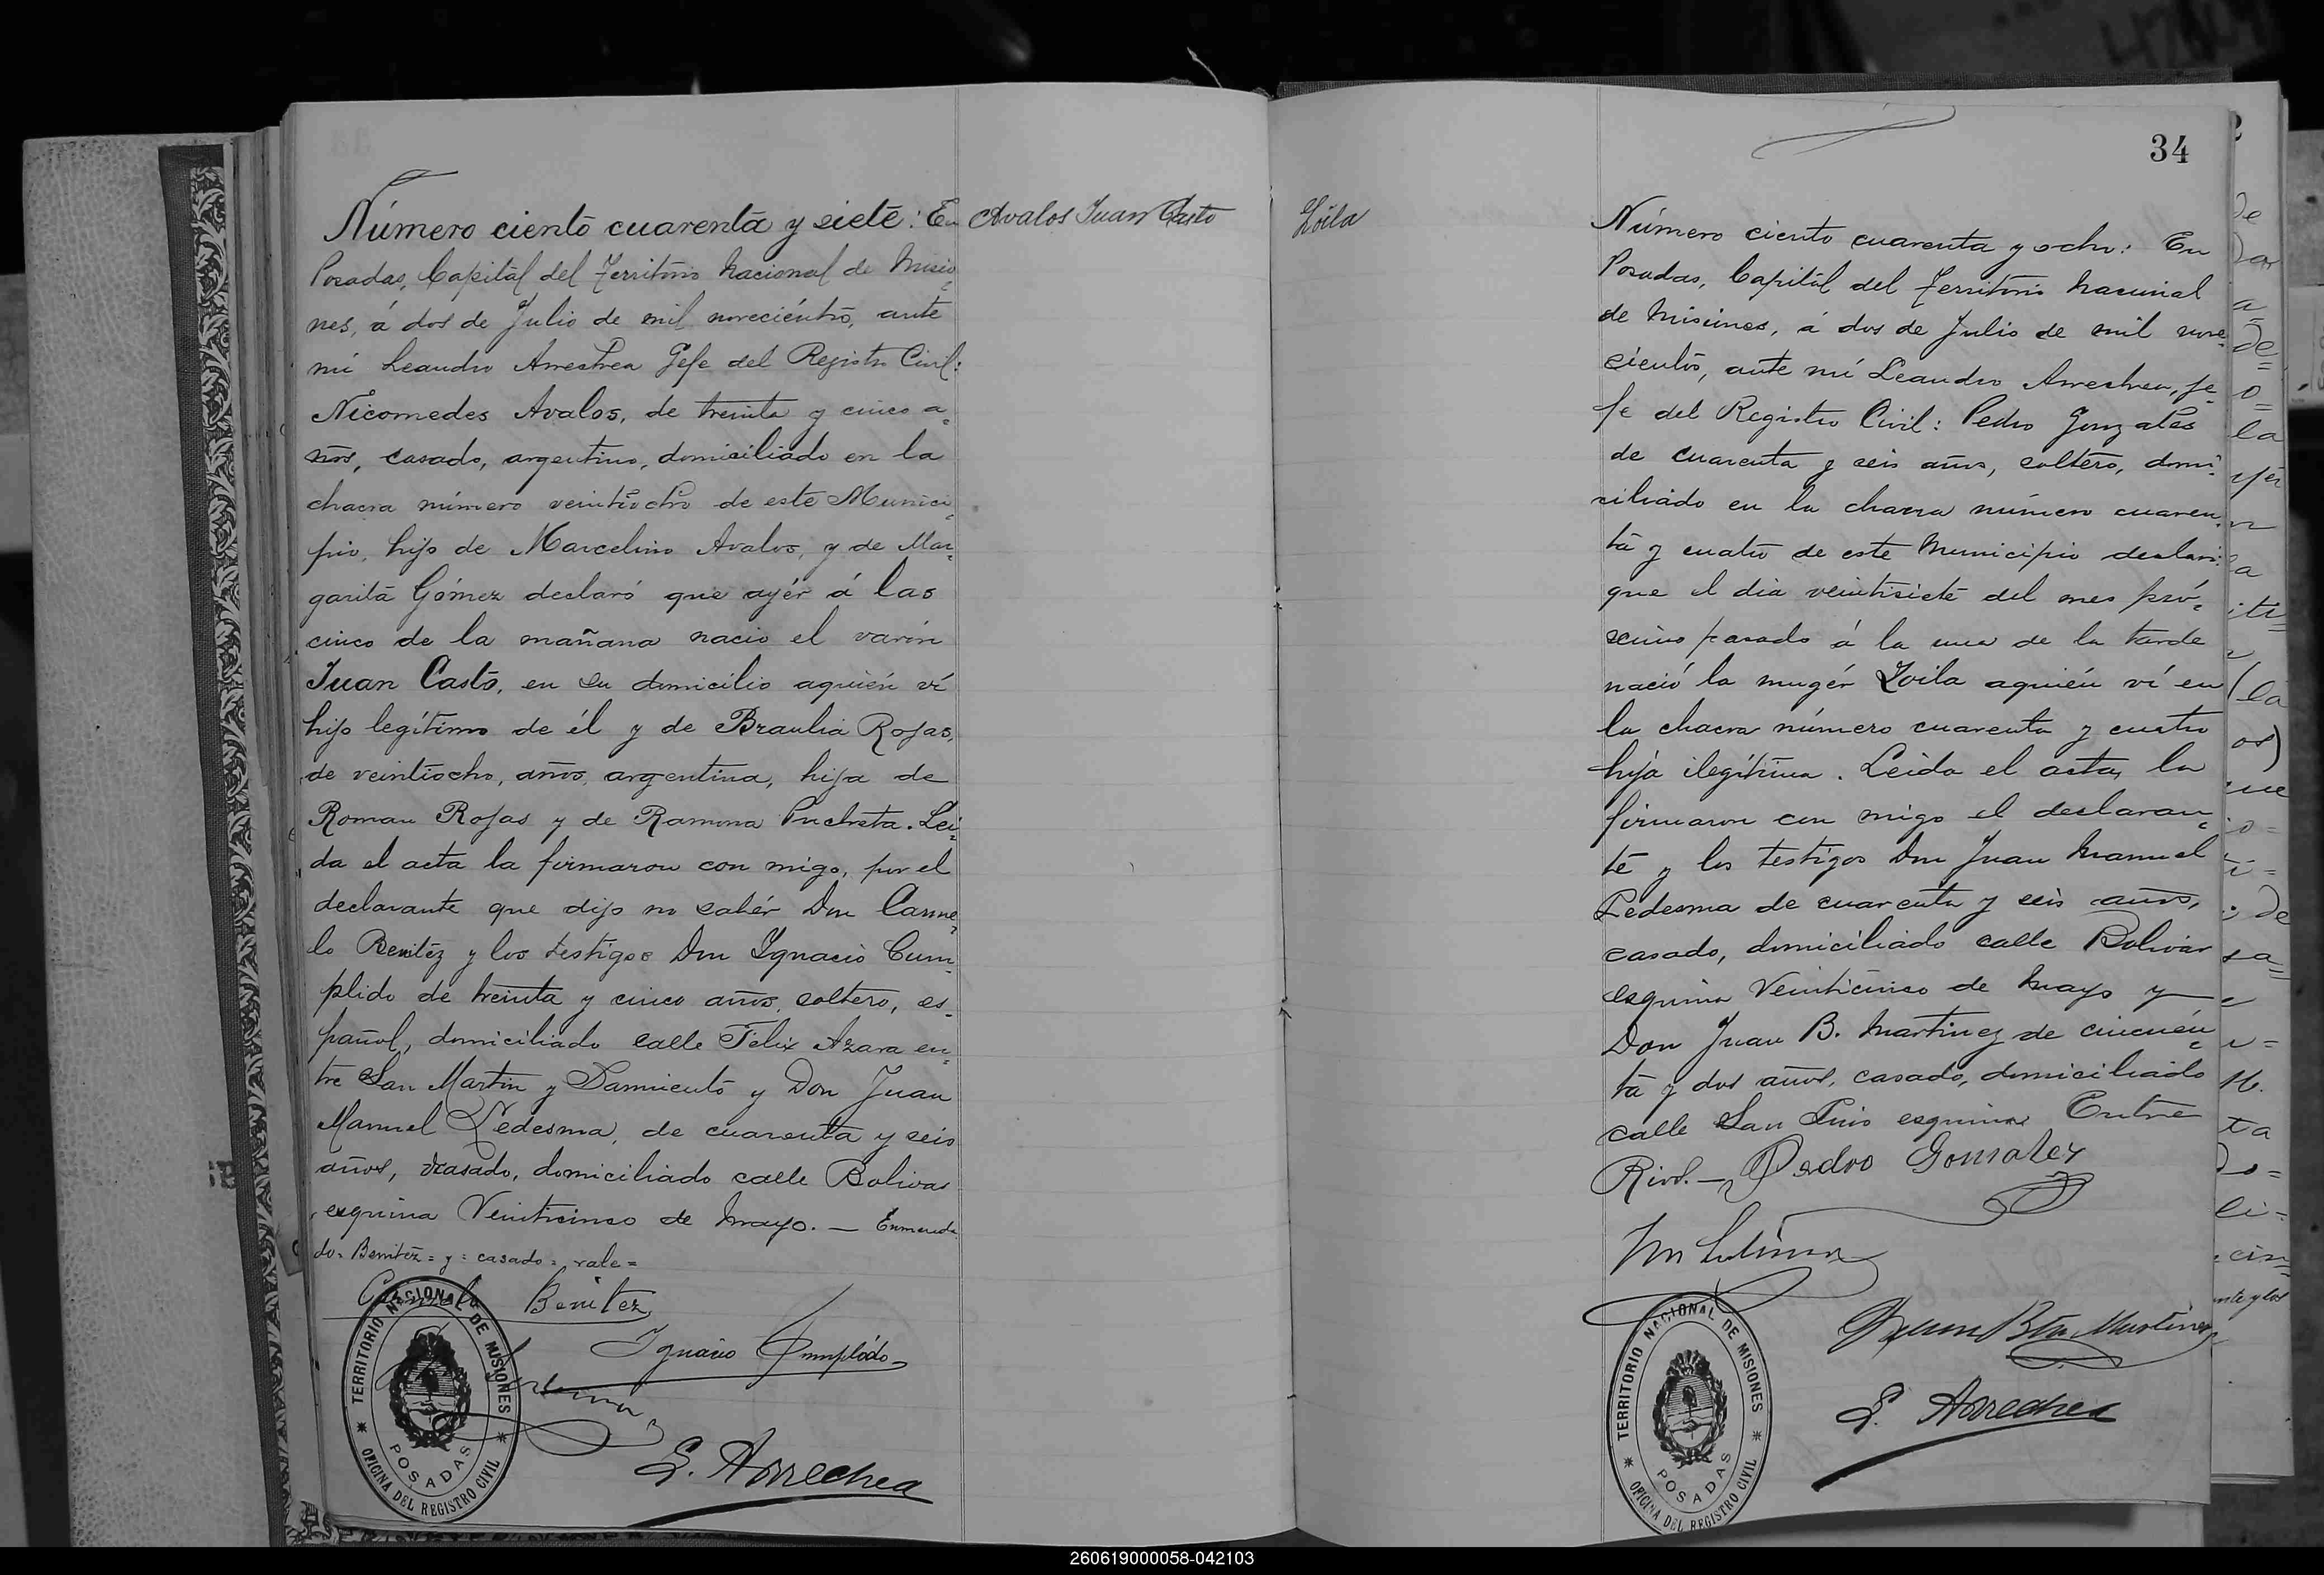 Número ciento cuarenta y siete: En
Posadas, Capital del Territorio Nacional de Misio=
nes, á dos de Julio de mil novecientos, ante
mí Leandro Arrechea Gefe del Registro Civil:
Nicomedes Avalos, de treinta y cinco a=
ños, casado, argentino, domiciliado en la
chacra número veintiocho de este Munici=
pio, hijo de Marcelino Avalos, y de Mar=
garita Gómez declaró que ayér á las
cinco de la mañana nacio el varón
Juan Casto, en su domicilio aquién ví
hijo legítimo de él y de Braulia Rojas,
de veintiocho, años, argentina, hija de
Roman Rojas y de Ramona Pucheta. Lei=
da el acta la firmaron con migo, por el
declarante que dijo no sabér Don Carme=
lo Benitéz y los testigos Don Ygnacio Cum=
plido de treinta y cinco años, soltero, es=
pañol, domiciliado calle Felix Azara en=
tre San Martin y Sarmiento y Don Juan
Manuel Ledesma, de cuarenta y seis
años, casado, domiciliado calle Bolivar
esquina Veinticinco de Mayo. — Enmenda
do= Benitéz= y= casado= vale=
Carmelo Benitez
Ygnacio Cumplido
L. Arrechea
TERRITORIO NACIONAL DE MISIONES
POSADAS
OFICINA DEL REGISTRO CIVIL
Avalos Juan Casto
Zoila
34
Número ciento cuarenta y ocho: En
Posadas, Capital del Territorio Nacional
de Misiones, á dos de Julio de mil nove=
cientos, ante mí Leandro Arrechea, je=
fe del Registro Civil: Pedro Gonzales
de cuarenta y seis años, soltero, domi=
ciliado en la chacra número cuaren=
ta y cuatro de este Municipio declaró:
que el dia veintisiete del mes pró=
scimo pasado á la una de la tarde
nació la mugér Zoila aquién ví en
la chacra número cuarenta y cuatro
hija ilegítima. Leida el acta, la
firmaron con migo el declaran=
te y los testigos Don Juan Manuel
Ledesma de cuarenta y seis años,
casado, domiciliado calle Bolivar
esquina Veinticinco de Mayo y
Don Juan B. Martinez de cincuen=
ta y dos años, casado, domiciliado
calle San Luis esquina Entre
Rios. — Pedro Gonzalez
Juan Bta Martinez
L. Arrechea
TERRITORIO NACIONAL DE MISIONES
POSADAS
OFICINA DEL REGISTRO CIVIL
260619000058-042103